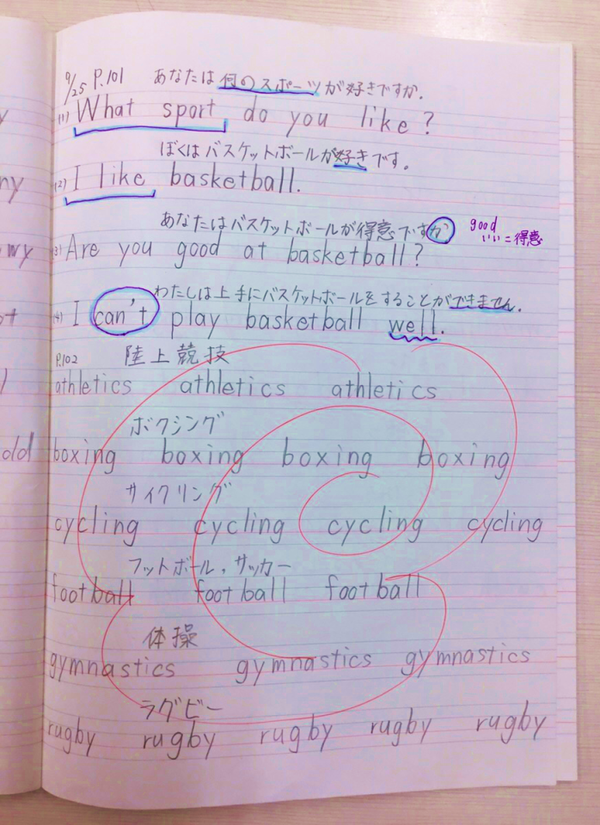 9/25 P.101 あなたは何のスポーツが好きですか.
(1) What sport do you like?
ぼくはバスケットボールが好きです。
(2) I like basketball.
あなたはバスケットボールが得意ですか good いい=得意
(3) Are you good at basketball?
わたしは上手にバスケットボールをすることができません.
(4) I can't play basketball well.
P.102 陸上競技
athletics athletics athletics
ボクシング
boxing boxing boxing boxing
サイクリング
cycling cycling cycling cycling
フットボール,サッカー
football football football
体操
gymnastics gymnastics gymnastics
ラグビー
rugby rugby rugby rugby rugby